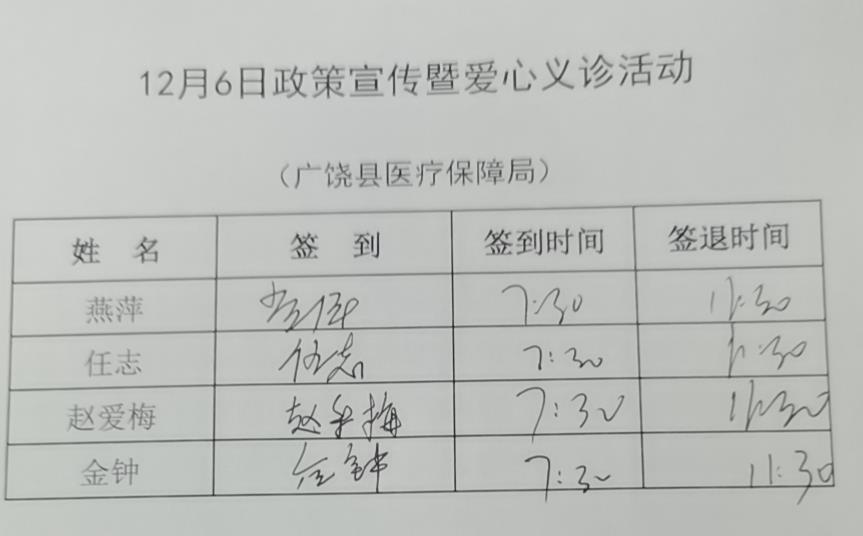 12月6日政策宣传暨爱心义诊活动
（广饶县医疗保障局）
姓 名 签 到 签到时间 签退时间
燕萍 7:30 11:30
任志 任志 7:30 11:30
赵爱梅 赵爱梅 7:30 11:30
金钟 金钟 7:30 11:30